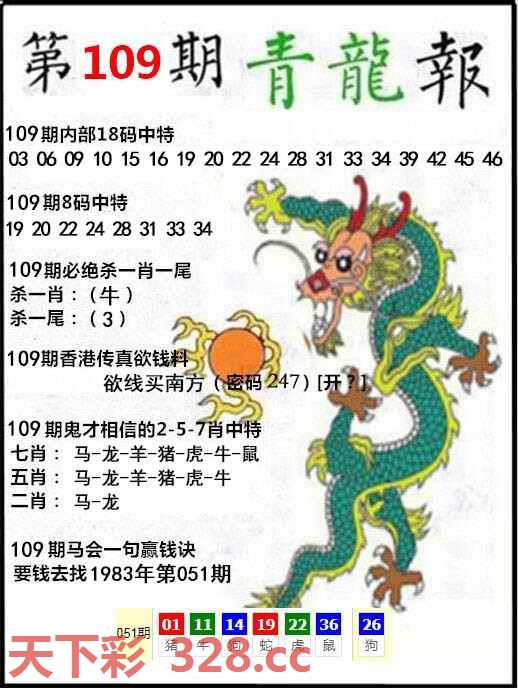 第109期青龍報
109期内部18码中特
03 06 09 10 15 16 19 20 22 24 28 31 33 34 39 42 45 46
109期8码中特
19 20 22 24 28 31 33 34
109期必绝杀一肖一尾
杀一肖：（牛）
杀一尾：（3）
109期香港传真欲钱料
欲线买南方（密码247）[开？]
109期鬼才相信的2-5-7肖中特
七肖： 马-龙-羊-猪-虎-牛-鼠
五肖： 马-龙-羊-猪-虎-牛
二肖： 马-龙
109期马会一句赢钱诀
要钱去找1983年第051期
051期 01 11 14 19 22 36 26
猪 牛 狗 蛇 虎 鼠 狗
天下彩 328.cc